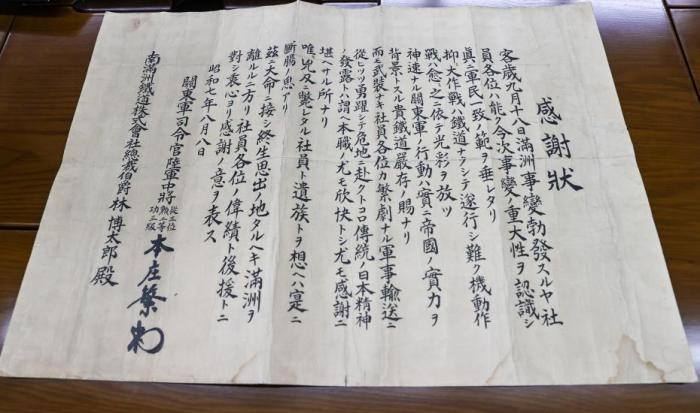 感謝狀
客歲九月十八日滿洲事變勃發スルヤ社
員各位ハ能ク今次事變ノ重大性ヲ認識シ
眞ニ軍民一致ノ範ヲ垂レタリ
抑〻大作戰ハ鐵道ナクシテ遂行シ難ク機動作
戰ハ愈〻之ニ依テ光彩ヲ放ツ
神速ナル關東軍ノ行動ハ實ニ帝國ノ實力ヲ
背景トスル貴鐵道嚴存ノ賜ナリ
而モ武裝ナキ社員各位カ繁劇ナル軍事輸送ニ
從ヒツツ勇躍シテ危地ニ赴クトコロ傳統ノ日本精神
ノ發露ト謂ヘ本職ノ尤モ欣快トシ尤モ感謝ニ
堪ヘサル所ナリ
唯〻兇刃ニ斃レタル社員ト遺族トヲ想ヘハ寔ニ
斷腸ノ思アリ
茲ニ大命ニ接シ終生思出ノ地タルヘキ滿洲ヲ
離ルルニ方リ社員各位ノ偉績ト後援トニ
對シ衷心ヨリ感謝ノ意ヲ表ス
昭和七年八月八日
關東軍司令官陸軍中將
從三位
勲二等
功三級
本庄繁
南滿洲鐵道株式會社總裁伯爵林博太郎殿